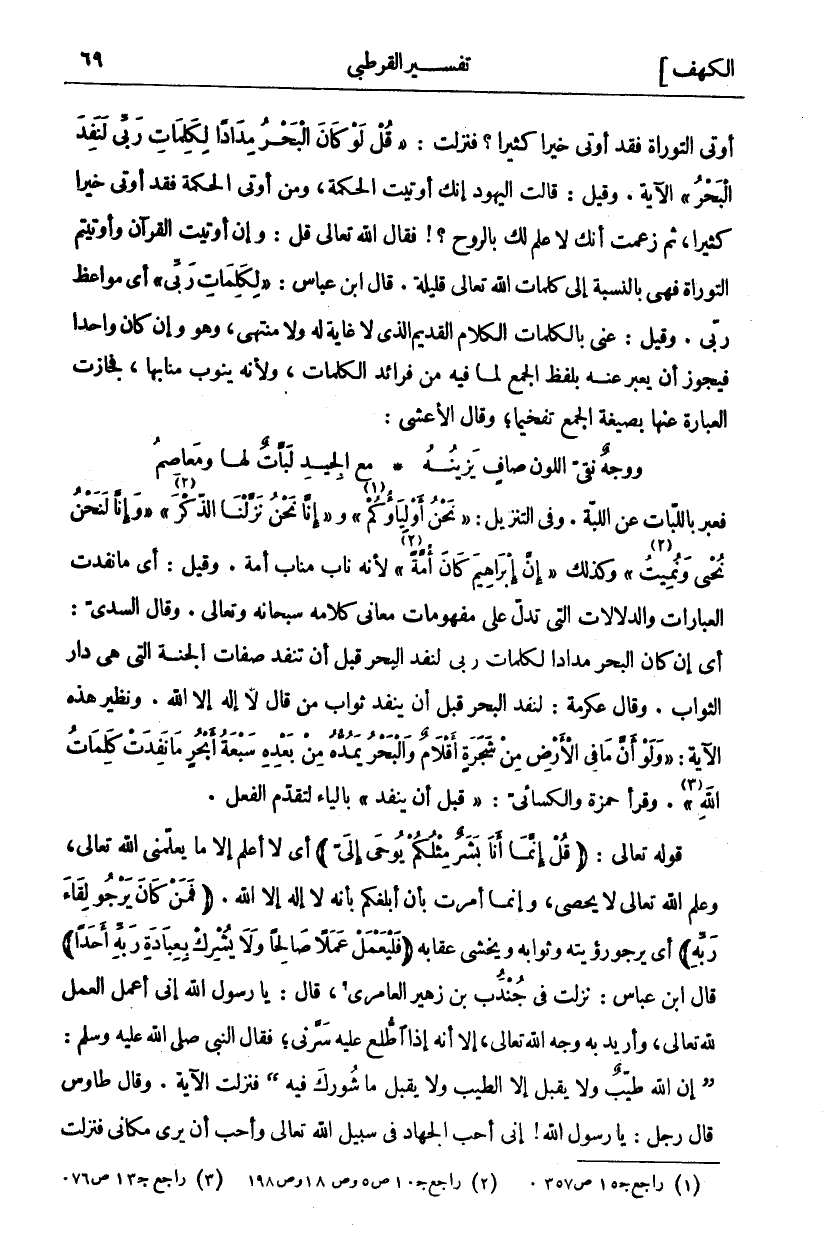 الكهف ] تفسير القرطبى ٦٩
أوتى التوراة فقد أوتى خيرا كثيرا ؟ فنزلت : « قُلْ لَوْ كَانَ الْبَحْرُ مِدَادًا لِكَلِمَاتِ رَبِّى لَنَفِدَ
الْبَحْرُ » الآية . وقيل : قالت اليهود إنك أوتيت الحكمة ، ومن أوتى الحكمة فقد أوتى خيرا
كثيرا ، ثم زعمت أنك لا علم لك بالروح ؟ ! فقال الله تعالى قل : وإن أوتيت القرآن وأوتيتم
التوراة فهى بالنسبة إلى كلمات الله تعالى قليلة . قال ابن عباس : « لِكَلِمَاتِ رَبِّى » أى مواعظ
ربّى . وقيل : عنى بالكلمات الكلام القديم الذى لا غاية له ولا منتهى ، وهو وإن كان واحدا
فيجوز أن يعبر عنه بلفظ الجمع لما فيه من فرائد الكلمات ، ولأنه ينوب منابها ، فجازت
العبارة عنها بصيغة الجمع تفخيما ؛ وقال الأعشى :
ووجهٌ نقىّ اللون صافٍ يَزينُهُ * مع الجِيدِ لَبَّاتٌ لها ومَعَاصِمُ
فعبر باللبات عن اللبة . وفى التنزيل : « نَحْنُ أَوْلِيَاؤُكُمْ (١) » و « إِنَّا نَحْنُ نَزَّلْنَا الذِّكْرَ (٢) » « وَإِنَّا لَنَحْنُ
نُحْيِى وَنُمِيتُ (٢) » وكذلك « إِنَّ إِبْرَاهِيمَ كَانَ أُمَّةً (٢) » لأنه ناب مناب أمة . وقيل : أى ما نفدت
العبارات والدلالات التى تدلّ على مفهومات معانى كلامه سبحانه وتعالى . وقال السدىّ :
أى إن كان البحر مدادا لكلمات ربى لنفد البحر قبل أن تنفد صفات الجنة التى هى دار
الثواب . وقال عكرمة : لنفد البحر قبل أن ينفد ثواب من قال لا إله إلا الله . ونظير هذه
الآية : « وَلَوْ أَنَّ مَا فِى الْأَرْضِ مِنْ شَجَرَةٍ أَقْلَامٌ وَالْبَحْرُ يَمُدُّهُ مِنْ بَعْدِهِ سَبْعَةُ أَبْحُرٍ مَا نَفِدَتْ كَلِمَاتُ
اللهِ (٣) » . وقرأ حمزة والكسائىّ : « قبل أن ينفد » بالياء لتقدّم الفعل .
قوله تعالى : ﴿ قُلْ إِنَّمَا أَنَا بَشَرٌ مِثْلُكُمْ يُوحَى إِلَىَّ ﴾ أى لا أعلم إلا ما يعلّمنى الله تعالى ،
وعلم الله تعالى لا يحصى ، وإنما أمرت بأن أبلغكم بأنه لا إله إلا الله . ﴿ فَمَنْ كَانَ يَرْجُو لِقَاءَ
رَبِّهِ ﴾ أى يرجو رؤيته وثوابه ويخشى عقابه ﴿ فَلْيَعْمَلْ عَمَلًا صَالِحًا وَلَا يُشْرِكْ بِعِبَادَةِ رَبِّهِ أَحَدًا ﴾
قال ابن عباس : نزلت فى جُنْدُب بن زهير العامرى ، قال : يا رسول الله إنى أعمل العمل
لله تعالى ، وأريد به وجه الله تعالى ، إلا أنه إذا اطُّلع عليه سَرَّنى ؛ فقال النبي صلى الله عليه وسلم :
" إن الله طيّبٌ ولا يقبل إلا الطيب ولا يقبل ما شُورِكَ فيه " فنزلت الآية . وقال طاوس
قال رجل : يا رسول الله ! إنى أحب الجهاد فى سبيل الله تعالى وأحب أن يرى مكانى فنزلت
(١) راجع جـ ١٥ ص ٣٥٧ . (٢) راجع جـ ١٠ ص ٥ وص ١٨ وص ١٩٨ (٣) راجع جـ ١٣ ص ٧٦ .